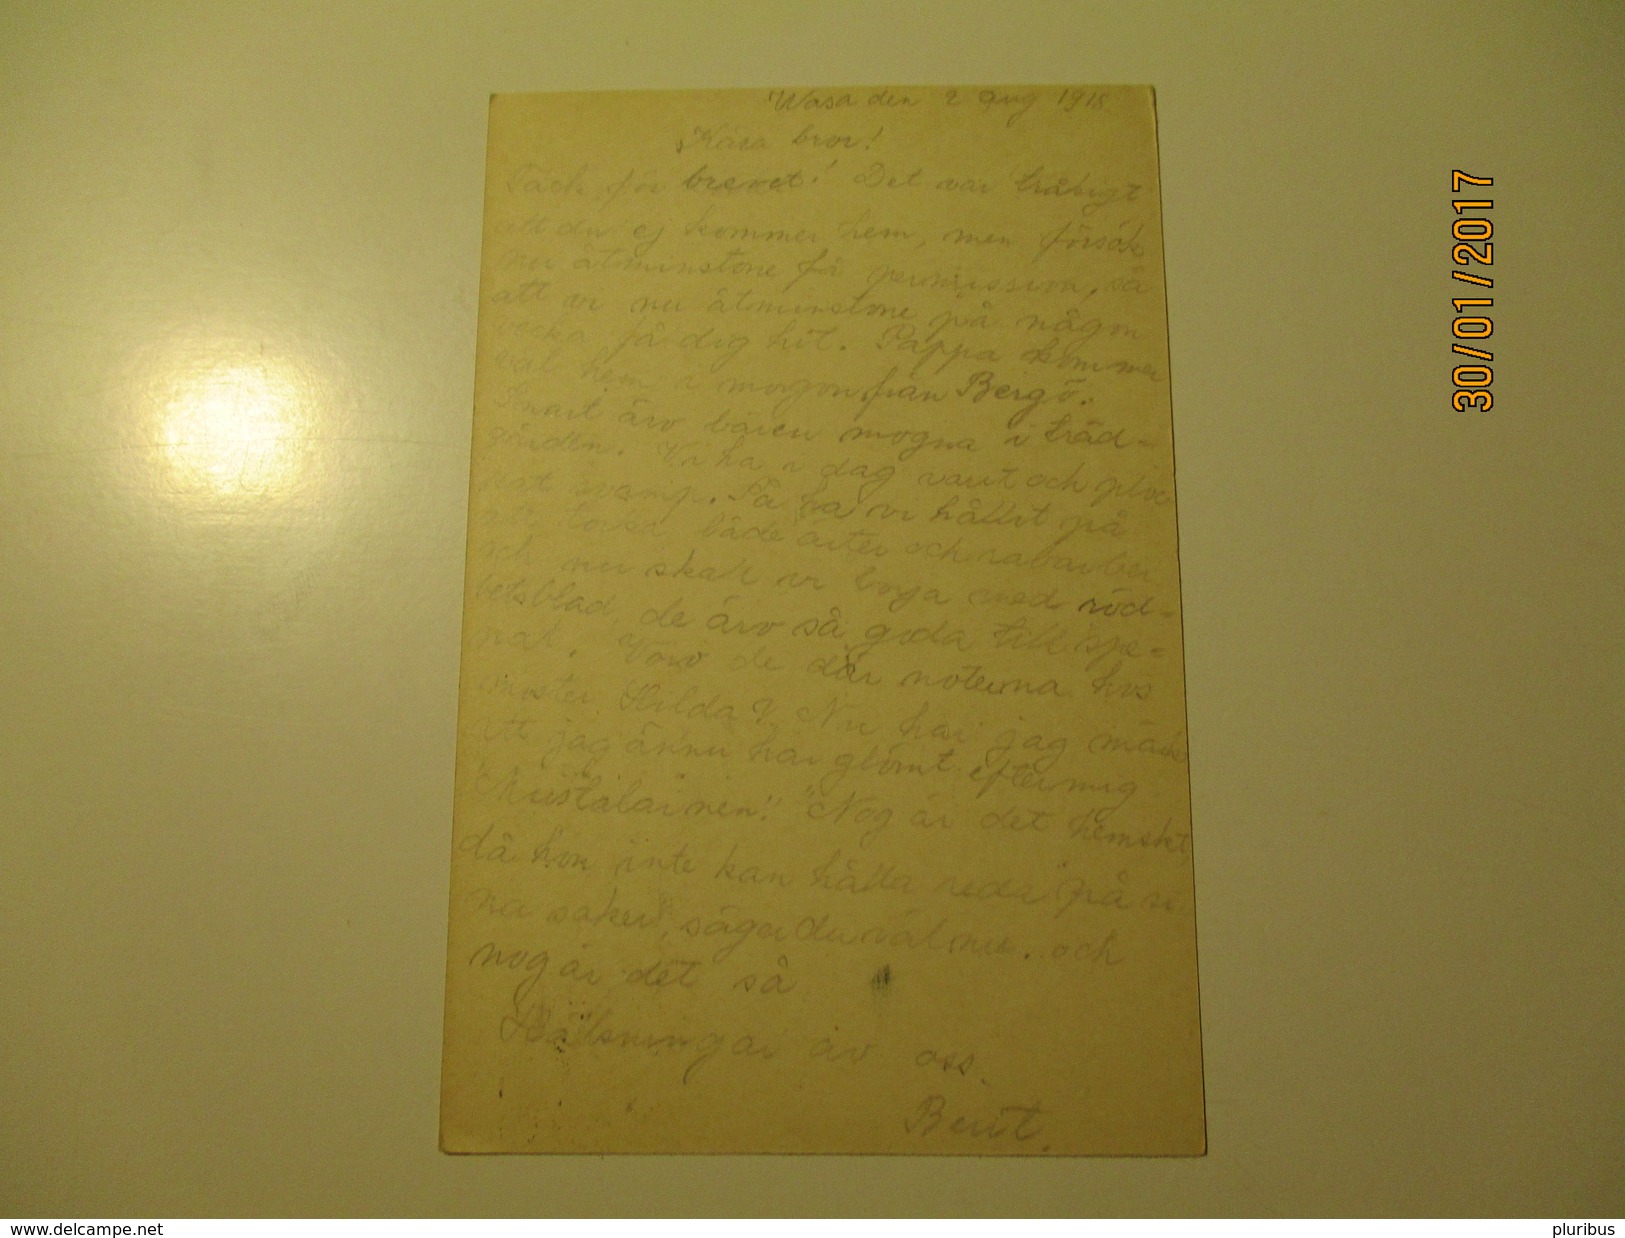 Wasa den 2 Aug 1918
Kära bror!
Tack för brevet! Det var tråkigt
att du ej kommer hem, men försök
nu åtminstone få permission, så
att vi nu åtminstone på någon
vecka få dig hit. Pappa kommer
väl hem i morgon från Bergö.
Snart äro bären mogna i träd-
gården. Vi ha i dag varit och ploc
kat svamp. Så ha vi hållit på
att torka både ärter och rabarber
och nu skall vi börja med röd-
betsblad, de äro så goda till spe-
nat. Voro de där noterna hos
moster Hilda? Nu har jag märkt
att jag ännu har glömt efter mig
"Nog är det hemskt,
då hon inte kan hålla reda på si
na saker", säger du väl nu. och
nog är det så
Hälsningar av oss.
Berit.
30/01/2017
www.delcampe.net
pluribus